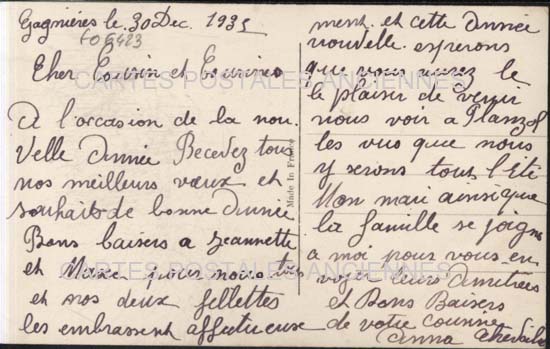 Gagnières le 30 Dec. 1935
606423
Cher Cousin et Cousines
A l'occasion de la nou
velle Année Recevez tous
nos meilleurs vœux et
souhaits de bonne Année
Bons baisers a Jeannette
et Maxe pour nous tous
et nos deux fillettes
les embrassent affectueuse
ment. et cette Année
nouvelle esperons
que vous aurez le
le plaisir de venir
nous voir a Planzol
les vus que nous
y serons tout l'été
Mon mari ainsi que
la famille se joigne
a moi pour vous en
voyer leurs Amitiées
et Bons Baisers
de votre cousine
Anna
Made in France
CARTES POSTALES ANCIENNES
CARTES POSTALES ANCIENNES